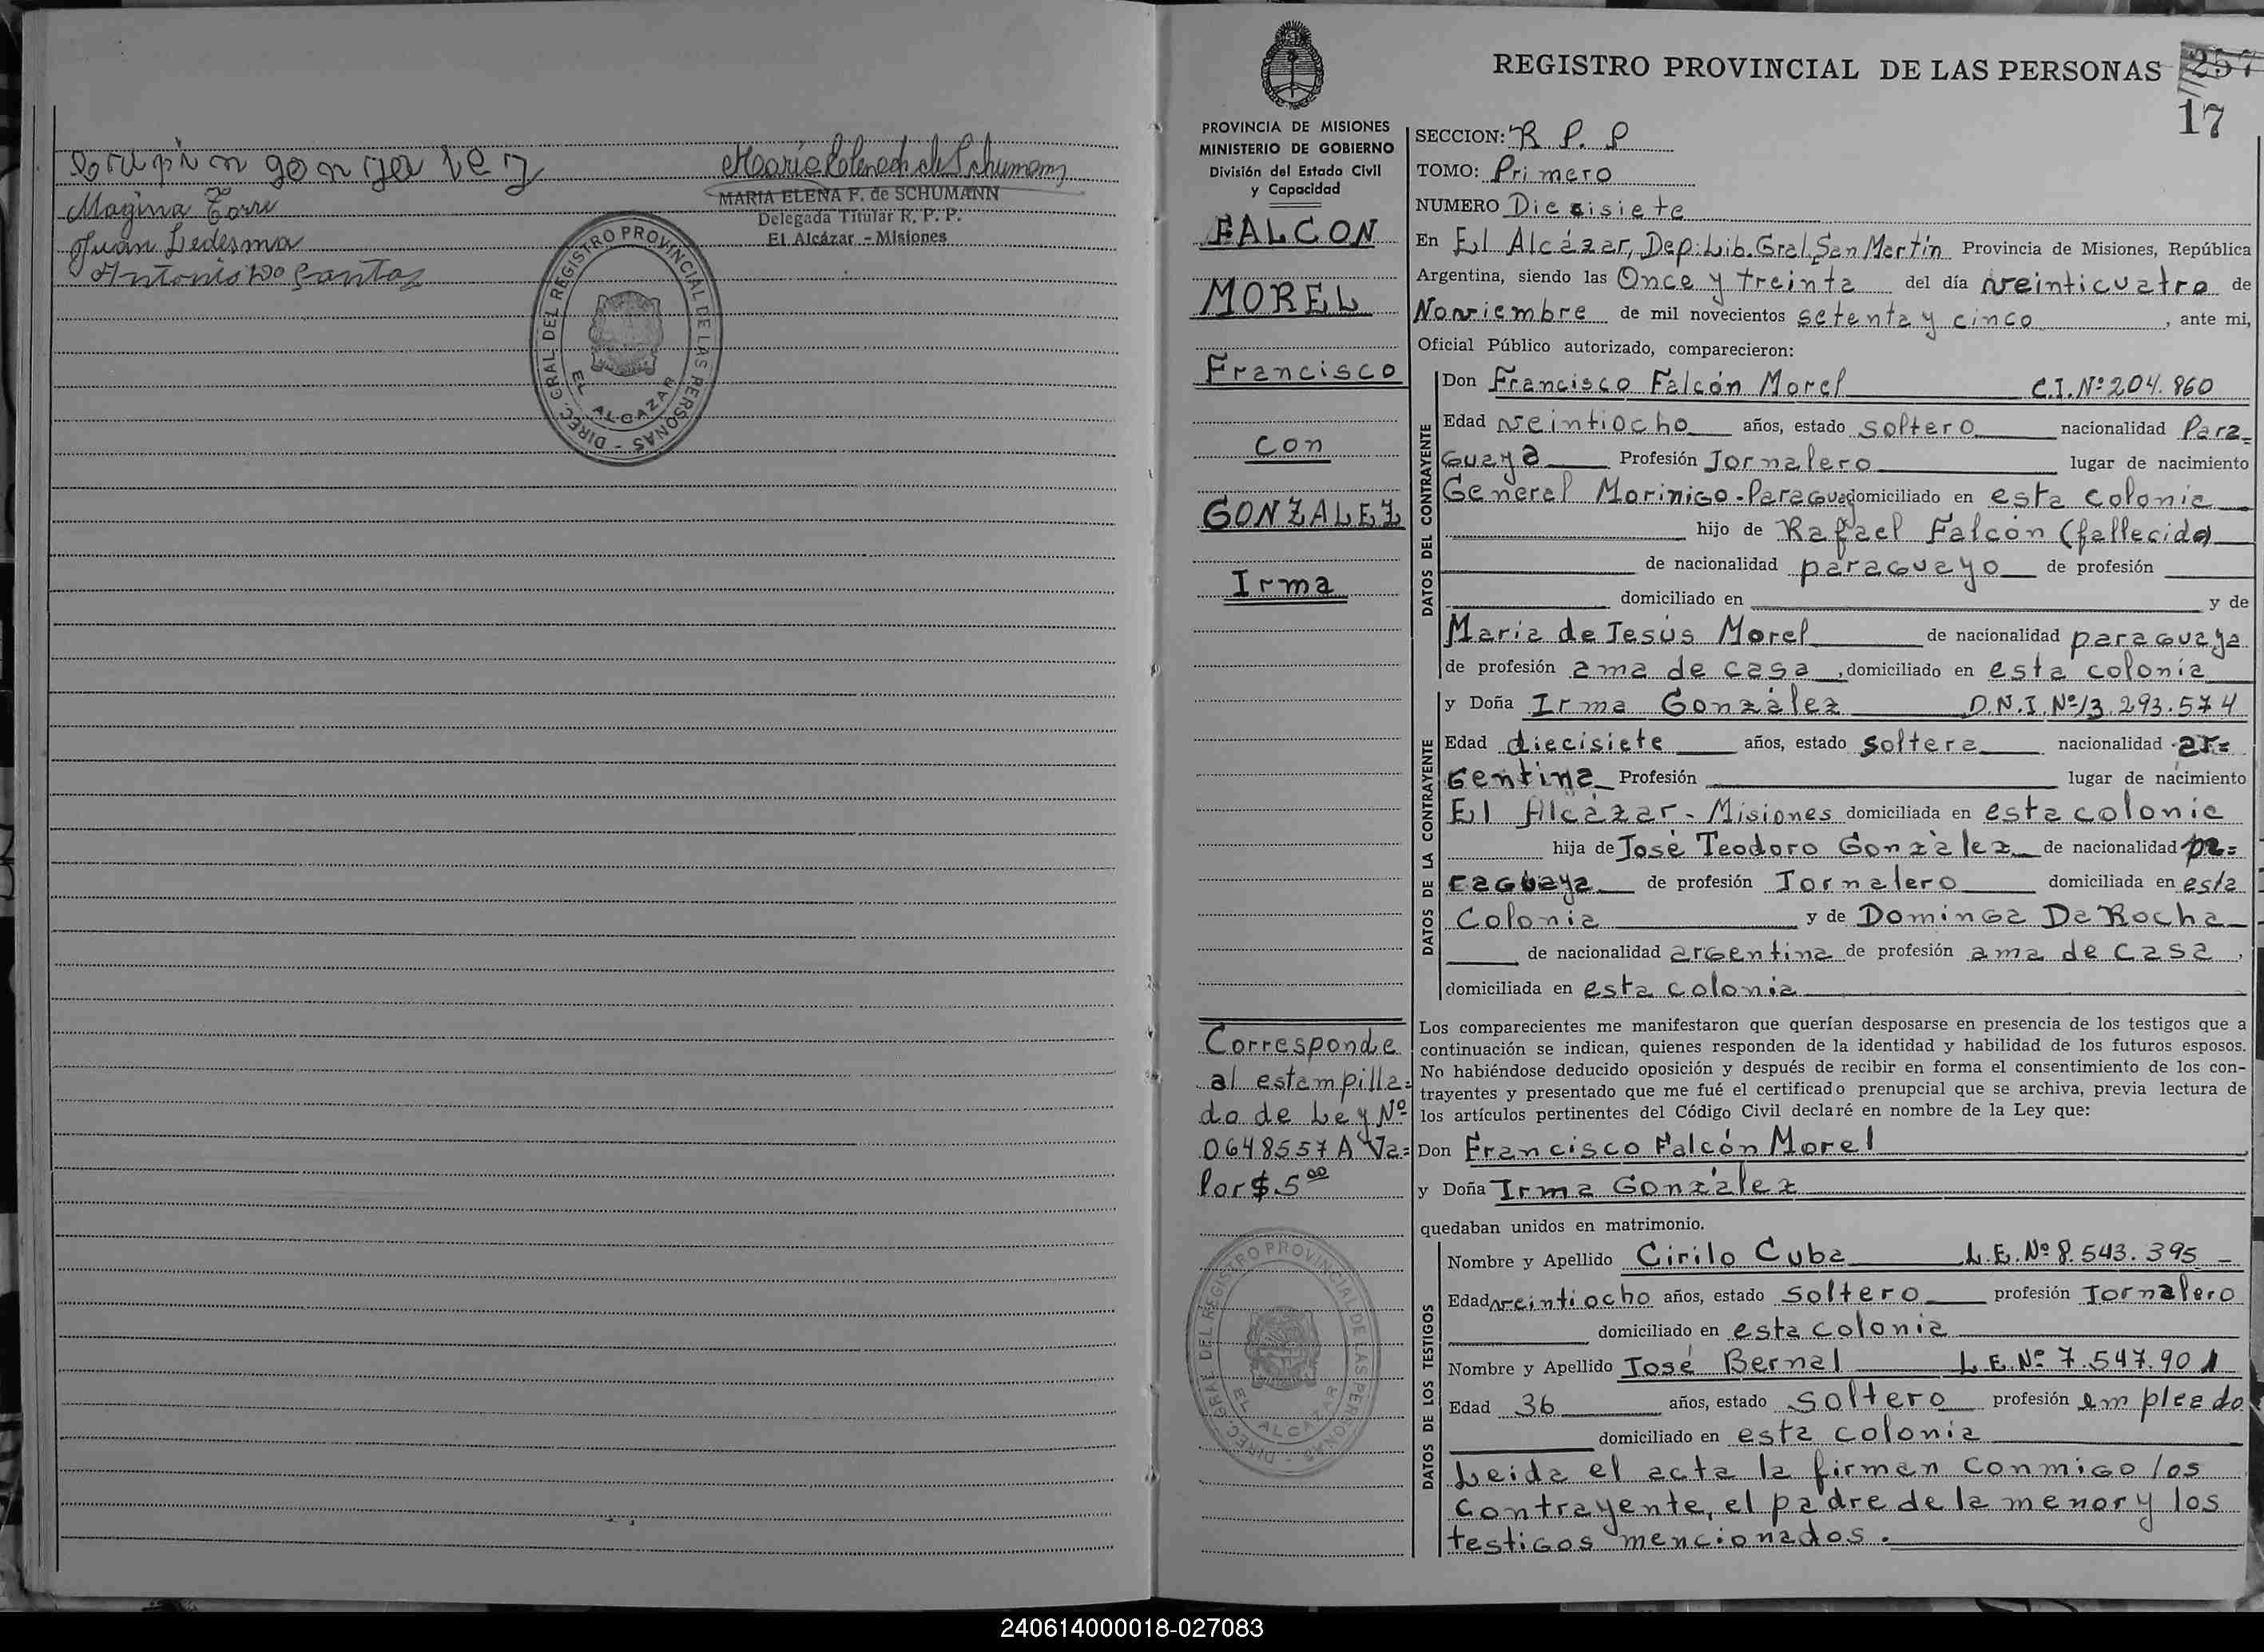 Crispin gonzalez
Magina Torre
Juan Ledesma
Antonio Do Santos
MARIA ELENA F. de SCHUMANN
Delegada Titular R. P. P.
El Alcázar - Misiones
DIREC. GRAL. DEL REGISTRO PROVINCIAL DE LAS PERSONAS -
EL ALCAZAR
REGISTRO PROVINCIAL DE LAS PERSONAS
257
17
PROVINCIA DE MISIONES
MINISTERIO DE GOBIERNO
División del Estado Civil
y Capacidad
FALCON
MOREL
Francisco
con
GONZALEZ
Irma
Corresponde
al estampilla=
do de Ley Nº
0648557 A Va=
lor $ 5 00
DIREC. GRAL. DEL REGISTRO PROVINCIAL DE LAS PERSONAS -
EL ALCAZAR
SECCION: R. P. P
TOMO: Primero
NUMERO Diecisiete
En El Alcázar, Dep: Lib. Gral. San Martín Provincia de Misiones, República
Argentina, siendo las Once y treinta del día veinticuatro de
Noviembre de mil novecientos setenta y cinco, ante mi,
Oficial Público autorizado, comparecieron:
DATOS DEL CONTRAYENTE
Don Francisco Falcón Morel C.I. Nº 204.860
Edad veintiocho años, estado soltero nacionalidad Para=
guaya Profesión Jornalero lugar de nacimiento
General Morinigo - Paraguay domiciliado en esta colonia
hijo de Rafael Falcón (fallecido)
de nacionalidad paraguayo de profesión
domiciliado en y de
María de Jesús Morel de nacionalidad paraguaya
de profesión ama de casa, domiciliado en esta colonia
DATOS DE LA CONTRAYENTE
y Doña Irma González D.N.I. Nº 13.293.574
Edad diecisiete años, estado soltera nacionalidad ar=
gentina Profesión lugar de nacimiento
El Alcázar - Misiones domiciliada en esta colonia
hija de José Teodoro González de nacionalidad pa=
raguaya de profesión Jornalero domiciliada en esta
Colonia y de Dominga Da Rocha
de nacionalidad argentina de profesión ama de casa,
domiciliada en esta colonia
Los comparecientes me manifestaron que querían desposarse en presencia de los testigos que a
continuación se indican, quienes responden de la identidad y habilidad de los futuros esposos.
No habiéndose deducido oposición y después de recibir en forma el consentimiento de los con-
trayentes y presentado que me fué el certificado prenupcial que se archiva, previa lectura de
los artículos pertinentes del Código Civil declaré en nombre de la Ley que:
Don Francisco Falcón Morel
y Doña Irma González
quedaban unidos en matrimonio.
DATOS DE LOS TESTIGOS
Nombre y Apellido Cirilo Cuba L.E. Nº 8.543.395 -
Edad veintiocho años, estado soltero profesión Jornalero
domiciliado en esta colonia
Nombre y Apellido José Bernal L.E. Nº 7.547.901
Edad 36 años, estado soltero profesión empleado
domiciliado en esta colonia
Leida el acta la firman conmigo los
contrayente, el padre de la menor y los
testigos mencionados.
240614000018-027083